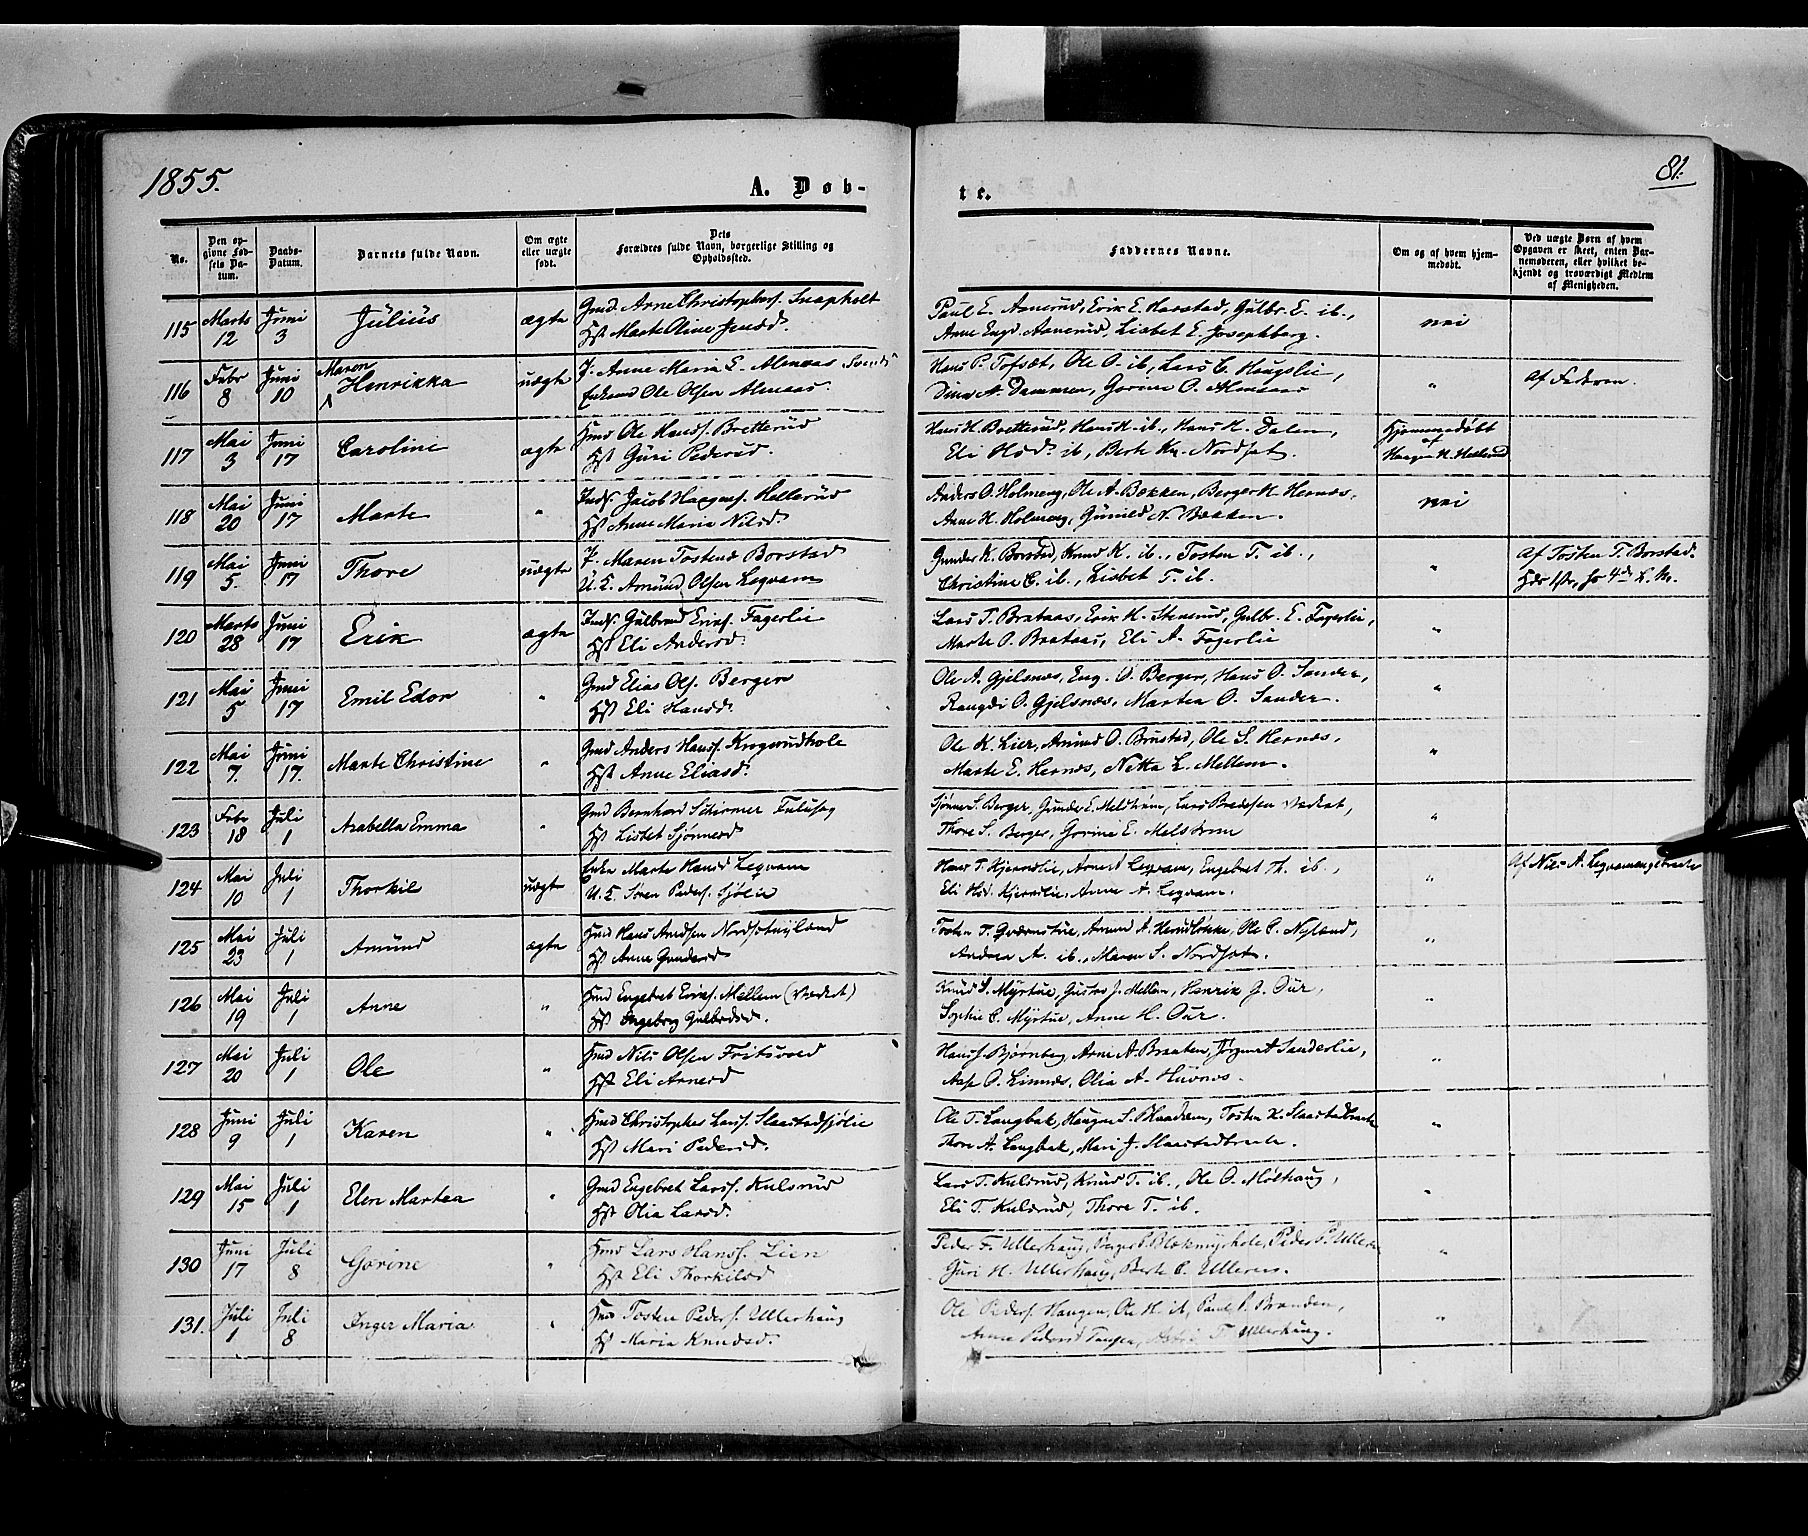 1855.
A. Døb-
te.
81.
No.
Den opgivne Fødsels Datum.
Daabs-Datum.
Barnets fulde Navn.
Om ægte eller uægte født.
Dets Forældres fulde Navn, borgerlige Stilling og Opholdssted.
Faddernes Navne.
Om og af hvem hjemmedøbt.
Ved uægte Børn af hvem Opgaven er skeet, enten Barnemoderen, eller hvilket bekjendt og troværdigt Medlem af Menigheden.
115 Marts 12 Juni 3 Julius ægte Gmd Arne Christophers. Snapholt
Hst Marte Oline Jensd.
Paul E. Asnerud, Erik E. Harstad, Gulbr. E. ib.,
Anne Engd. Asnerud, Lisbet E. Josephberg.
nei
116 Febr 8 Juni 10 Maren Henrikka uægte P. Anne Maria E. Almaas
Enkemd Ole Olsen Almaas.
Hans P. Tofsæt, Ole O. ib, Lars C. Haugslie,
Dina A. Dammen, Gorine O. Almaas
"
Af Faderen.
117 Mai 3 Juni 17 Caroline ægte Hmd Ole Hanss. Bretterud
Hst Guri Pedersd.
Hans H. Bretterud, Hans H. ib., Hans H. Dalen,
Eli Hsd. ib, Berte Kn. Nordset.
Hjemmedøbt af Haagen H.
118 Mai 20 Juni 17 Marte " Inds. Jacob Haagens. Hellerud
Hst Anne Maria Nilsd.
Anders O. Holmeng, Ole A. Bækken, Berger H. Hernæs,
Anne H. Holmeng, Gunild N. Bækken.
nei
119 Mai 5. Juni 17 Thore uægte P. Maren Tostensd Borstad
U. K. Amund Olsen Legvam
Gunder K. Borstad, Knud K. ib., Tosten T. ib.,
Christine C. ib., Lisbet T. ib.
"
Af Tosten T. Borstad.
120 Marts 28 Juni 17 Erik ægte Inds. Gulbrand Eriks. Fagerlie
Hst Eli Andersd.
Lars T. Brataas, Erik H. Stenerud, Gulbr. E. Fagerlie,
Marte O. Brataas, Eli A. Fagerlie
"
121 Mai 5 Juni 17 Emil Edor " Gmd Elias Ols. Berger
Hst Eli Hansd.
Ole A. Gjelsnæs, Eng. O. Berger, Hans O. Sander,
Rangdi O. Gjelsnæs, Martea O. Sander.
"
122 Mai 7. Juni 17. Marte Christine " Gmd Anders Hanss. Krogerudhole
Hst Anne Eliasd.
Ole K. Lier, Amund O. Brustad, Ole S. Hernæs,
Marte E. Hernæs, Netta L. Mellem.
"
123 Febr 18 Juli 1 Arabella Emma " Gmd Bernhard Schirmer
Hst Lisbet Sjønnersd
Sjønner S. Berger, Gunder E. Melstrøm, Lars
Thore S. Berger, Gorine E. Melstrøm
"
124 Mai 10 Juli 1 Thorkil uægte Enken Marte Hansd Legvam
U. K. Søren Peders. Sjølie
Hans T. Kjernslie, Arne A Legvam, Engebret Th. ib.,
Eli Hsd. Kjernslie, Anne A. Legvam.
"
Af Nils A. Legvamengebraaten
125 Mai 23 Juli 1 Amund ægte Hmd Hans Amdsen Nordsetnyland
Hst Anne Gundersd
Tosten T. Quærnstue, Amund A. Herudløkke, Ole C. Nyland,
Andrea A. ib., Maren S. Nordset.
"
126 Mai 19 Juli 1 Anne " Hmd Engebret Eriks. Mellem
Hst Ingeborg Gulbrdsd.
Knud S. Myrtue, Gustav J. Mellem, Henrik J. Our,
Sophie C. Myrtue, Anne H. Our.
"
127 Mai 20 Juli 1 Ole " Hmd Nils Olsen
Hst Eli Arnesd
Hans S. Bjørnberg, Arne A. Braaten, Jørgen A Sanderlie,
Aase O. Linnæs, Olia A.
"
128 Juni 9 Juli 1 Karen " Hmd Christopher Larss. Slaastadsjølie
Hst Mari Pedersd.
Ole T. Langbak, Haagen S. Blaadsem, Tosten K. Slaastadbraate
Thore A. Langbak, Mari J. Slaastadbraate.
"
129 Mai 15 Juli 1 Elen Martea " Gmd Engebret Larss. Kulsrud
Hst Olia Larsd.
Lars T. Kulsrud, Knud T. ib., Ole O. Molhaug,
Eli T. Kulsrud, Thore T. ib.
"
130 Juni 17 Juli 8 Gorine " Hmd Lars Hanss. Lien
Hst Eli Thorkilsd
Peder F. Ullerhaug, Berger P. Blekmyrhole, Peder P. Ulleren
Guri H. Ullerhaug, Berte C. Ulleren.
"
131. Juli 1 Juli 8 Inger Maria " Hmd Tosten Peders. Ullerhaug
Hst Maria Knudsd.
Ole Peders. Haugen, Ole H. ib, Paul P. Branden,
Anne Pedersd Tangen, T. Ullerhaug.
"